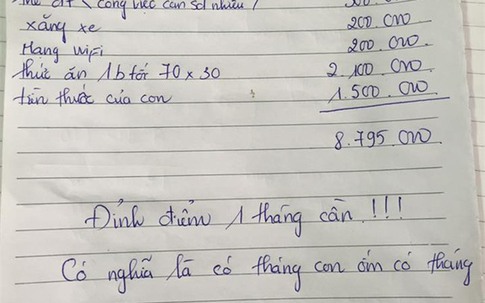 ĐT (công việc cần sd nhiều)
xăng xe 200.000
Mạng wifi 200.000
thức ăn 1b tối 70 x 30 2.100.000
tiền thuốc của con 1.500.000
8.795.000
Đỉnh điểm 1 tháng cần !!!
Có nghĩa là có tháng con ốm có tháng